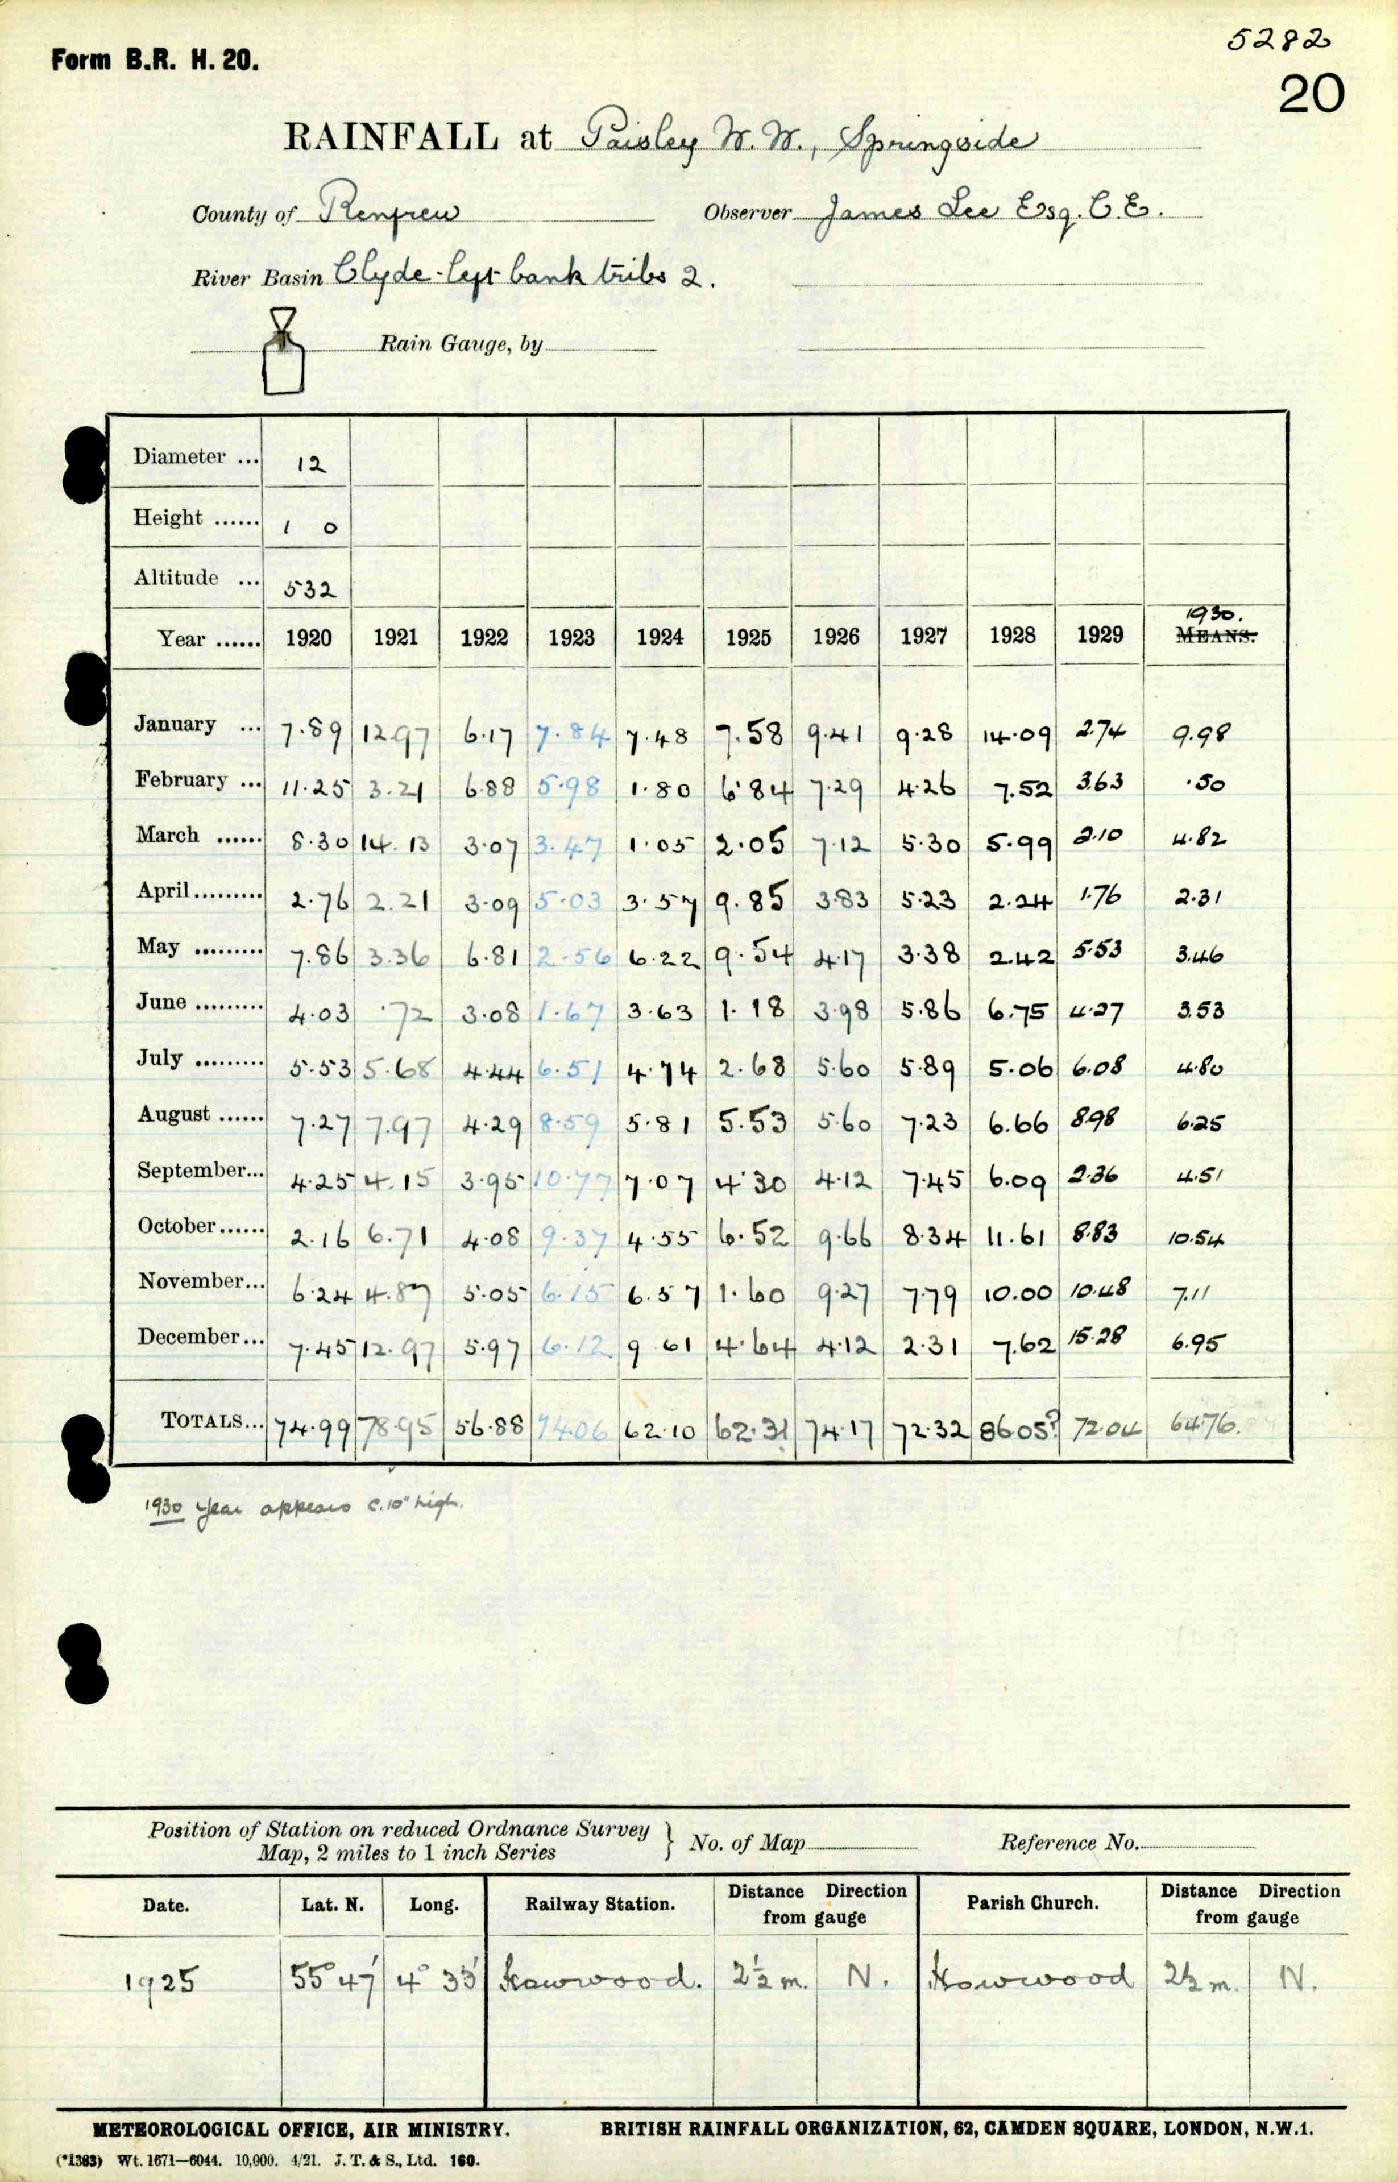 Form B.R. H. 20.
5282
20
RAINFALL at Paisley W.W., Springside
County of Renfrew Observer James Lee Esq. C.E.
River Basin Clyde-left bank tribs 2.
Rain Gauge, by
Diameter ... 12
Height ...... 1 0
Altitude ... 532
1930.
Year ...... 1920 1921 1922 1923 1924 1925 1926 1927 1928 1929 MEANS.
January ... 7.89 12.97 6.17 7.84 7.48 7.58 9.41 9.28 14.09 2.74 9.98
February ... 11.25 3.21 6.88 5.98 1.80 6.84 7.29 4.26 7.52 3.63 .50
March ...... 8.30 14.13 3.07 3.47 1.05 2.05 7.12 5.30 5.99 2.10 4.82
April ......... 2.76 2.21 3.09 5.03 3.57 9.85 3.83 5.23 2.24 1.76 2.31
May ......... 7.86 3.36 6.81 2.56 6.22 9.54 4.17 3.38 2.42 5.53 3.46
June ......... 4.03 .72 3.08 1.67 3.63 1.18 3.98 5.86 6.75 4.27 3.53
July ......... 5.53 5.68 4.44 6.51 4.74 2.68 5.60 5.89 5.06 6.08 4.80
August ...... 7.27 7.97 4.29 8.59 5.81 5.53 5.60 7.23 6.66 8.98 6.25
September... 4.25 4.15 3.95 10.77 7.07 4.30 4.12 7.45 6.09 2.36 4.51
October ...... 2.16 6.71 4.08 9.37 4.55 6.52 9.66 8.34 11.61 8.83 10.54
November... 6.24 4.87 5.05 6.15 6.57 1.60 9.27 7.79 10.00 10.48 7.11
December... 7.45 12.97 5.97 6.12 9.61 4.64 4.12 2.31 7.62 15.28 6.95
TOTALS... 74.99 78.95 56.88 74.06 62.10 62.31 74.17 72.32 86.05? 72.04 64.76.
1930 year appears c.10" high.
Position of Station on reduced Ordnance Survey
Map, 2 miles to 1 inch Series } No. of Map Reference No.
Date. Lat. N. Long. Railway Station. Distance Direction from gauge Parish Church. Distance Direction from gauge
1925 55° 47' 4° 33' Howwood. 2½ m. N. Howwood 2½ m. N.
METEOROLOGICAL OFFICE, AIR MINISTRY. BRITISH RAINFALL ORGANIZATION, 62, CAMDEN SQUARE, LONDON, N.W.1.
(*1383) Wt. 1671—6044. 10,000. 4/21. J. T. & S., Ltd. 160.